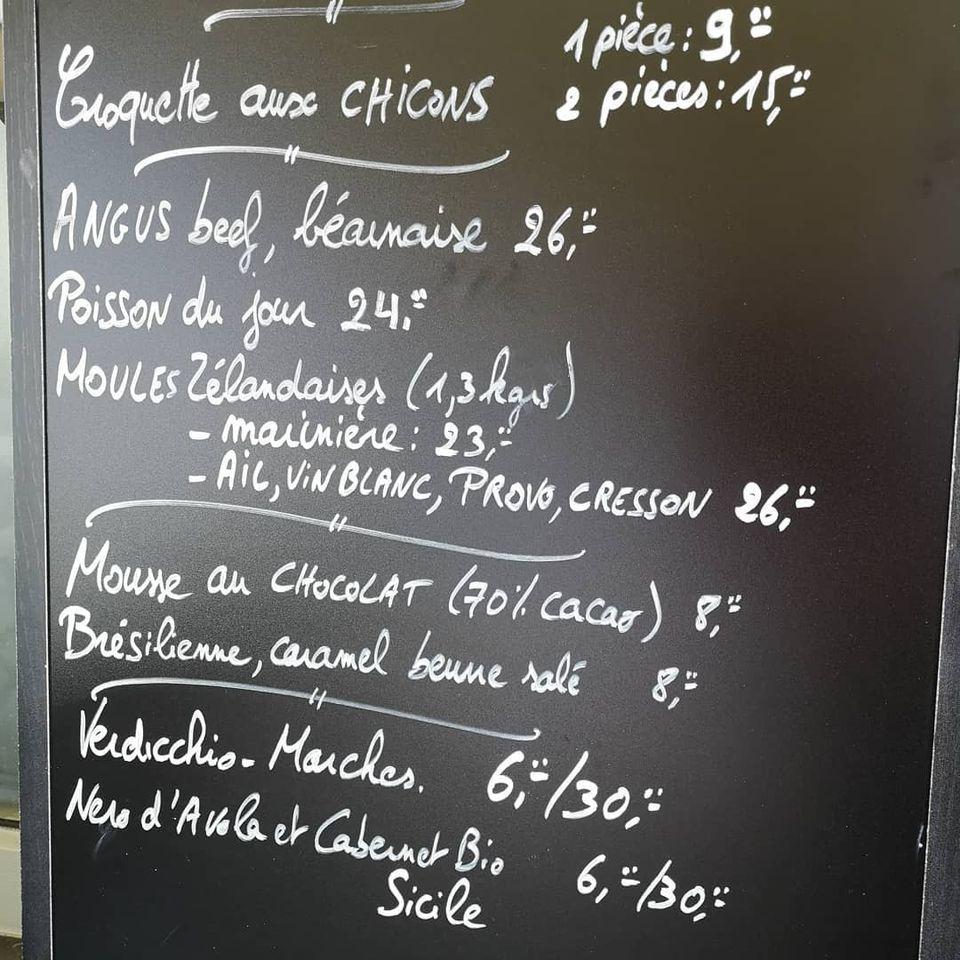 1 pièce : 9,=
Croquette aux CHICONS 2 pièces : 15,=
ANGUS beef, béarnaise 26,=
POISSON du jour 24.=
MOULES Zélandaises (1,3 kgrs)
- marinière : 23,=
- AIL, VIN BLANC, PROVO, CRESSON 26,=
Mousse au CHOCOLAT (70% cacao) 8,=
Brésilienne, caramel beurre salé 8,=
Verdicchio - Marches. 6,=/30,=
Nero d'Avola et Cabernet Bio 6,=/30,=
Sicile